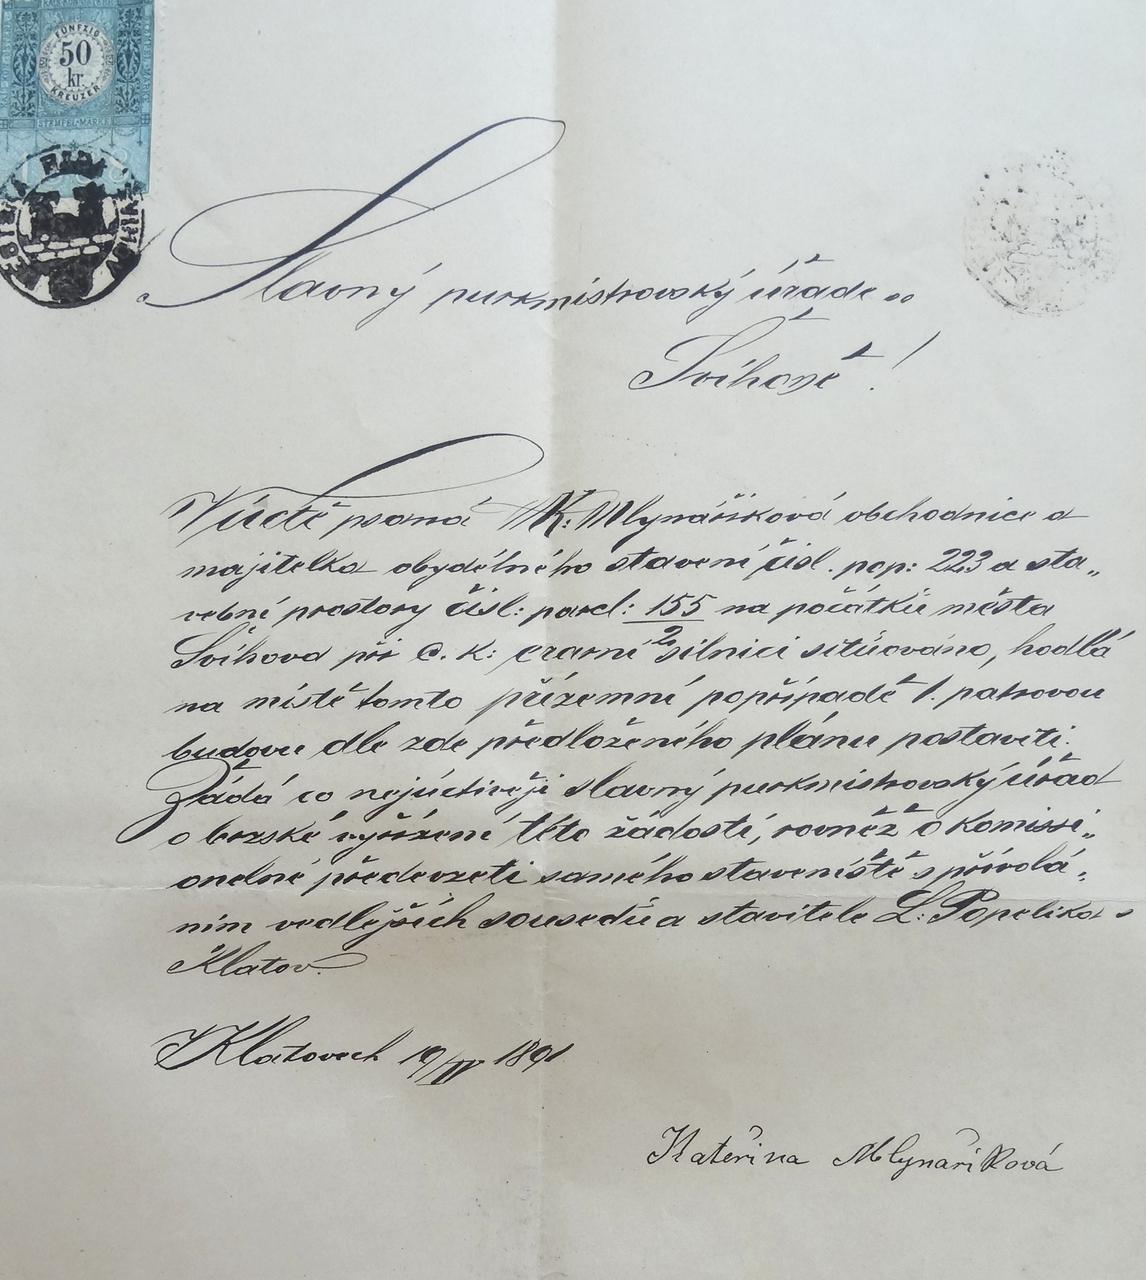 FÜNFZIG
50
kr.
KREUZER
STEMPEL-MARKE
188
Slavný purkmistrovský úřade v
Švihově!
V úctě psaná K: Mlynáříková obchodnice a
majitelka obydélného stavení čísl. pop: 223 a sta„
vební prostory čísl: parcl: 155/2 na počátku města
Švihova při c. k: erarní silnici situováno, hodlá
na místě tomto přízemní popřípadě 1. patrovou
budovu dle zde předloženého plánu postaviti.
Žádá co nejúctivěji slavný purkmistrovský úřad
o brzské vyřízení této žádosti, rovněž o komissi„
onelné předevzetí samého staveniště s přivolá„
ním vedlejších sousedů a stavitele L: Popelíka z
Klatov.
V Klatovech 19/IV 1891
Kateřina Mlynaříková